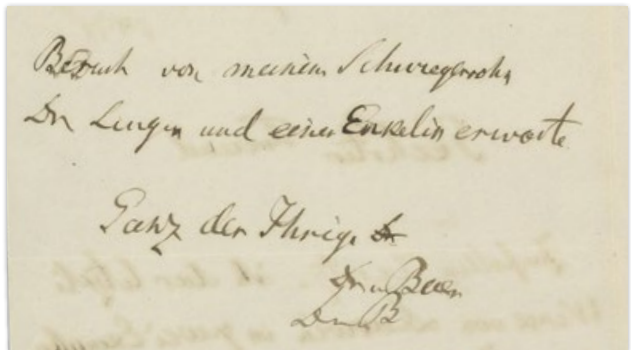 Besuch von meinem Schwiegersohn
Dr Lingen und einer Enkelin erwarte
Ganz der Ihrige
Baer